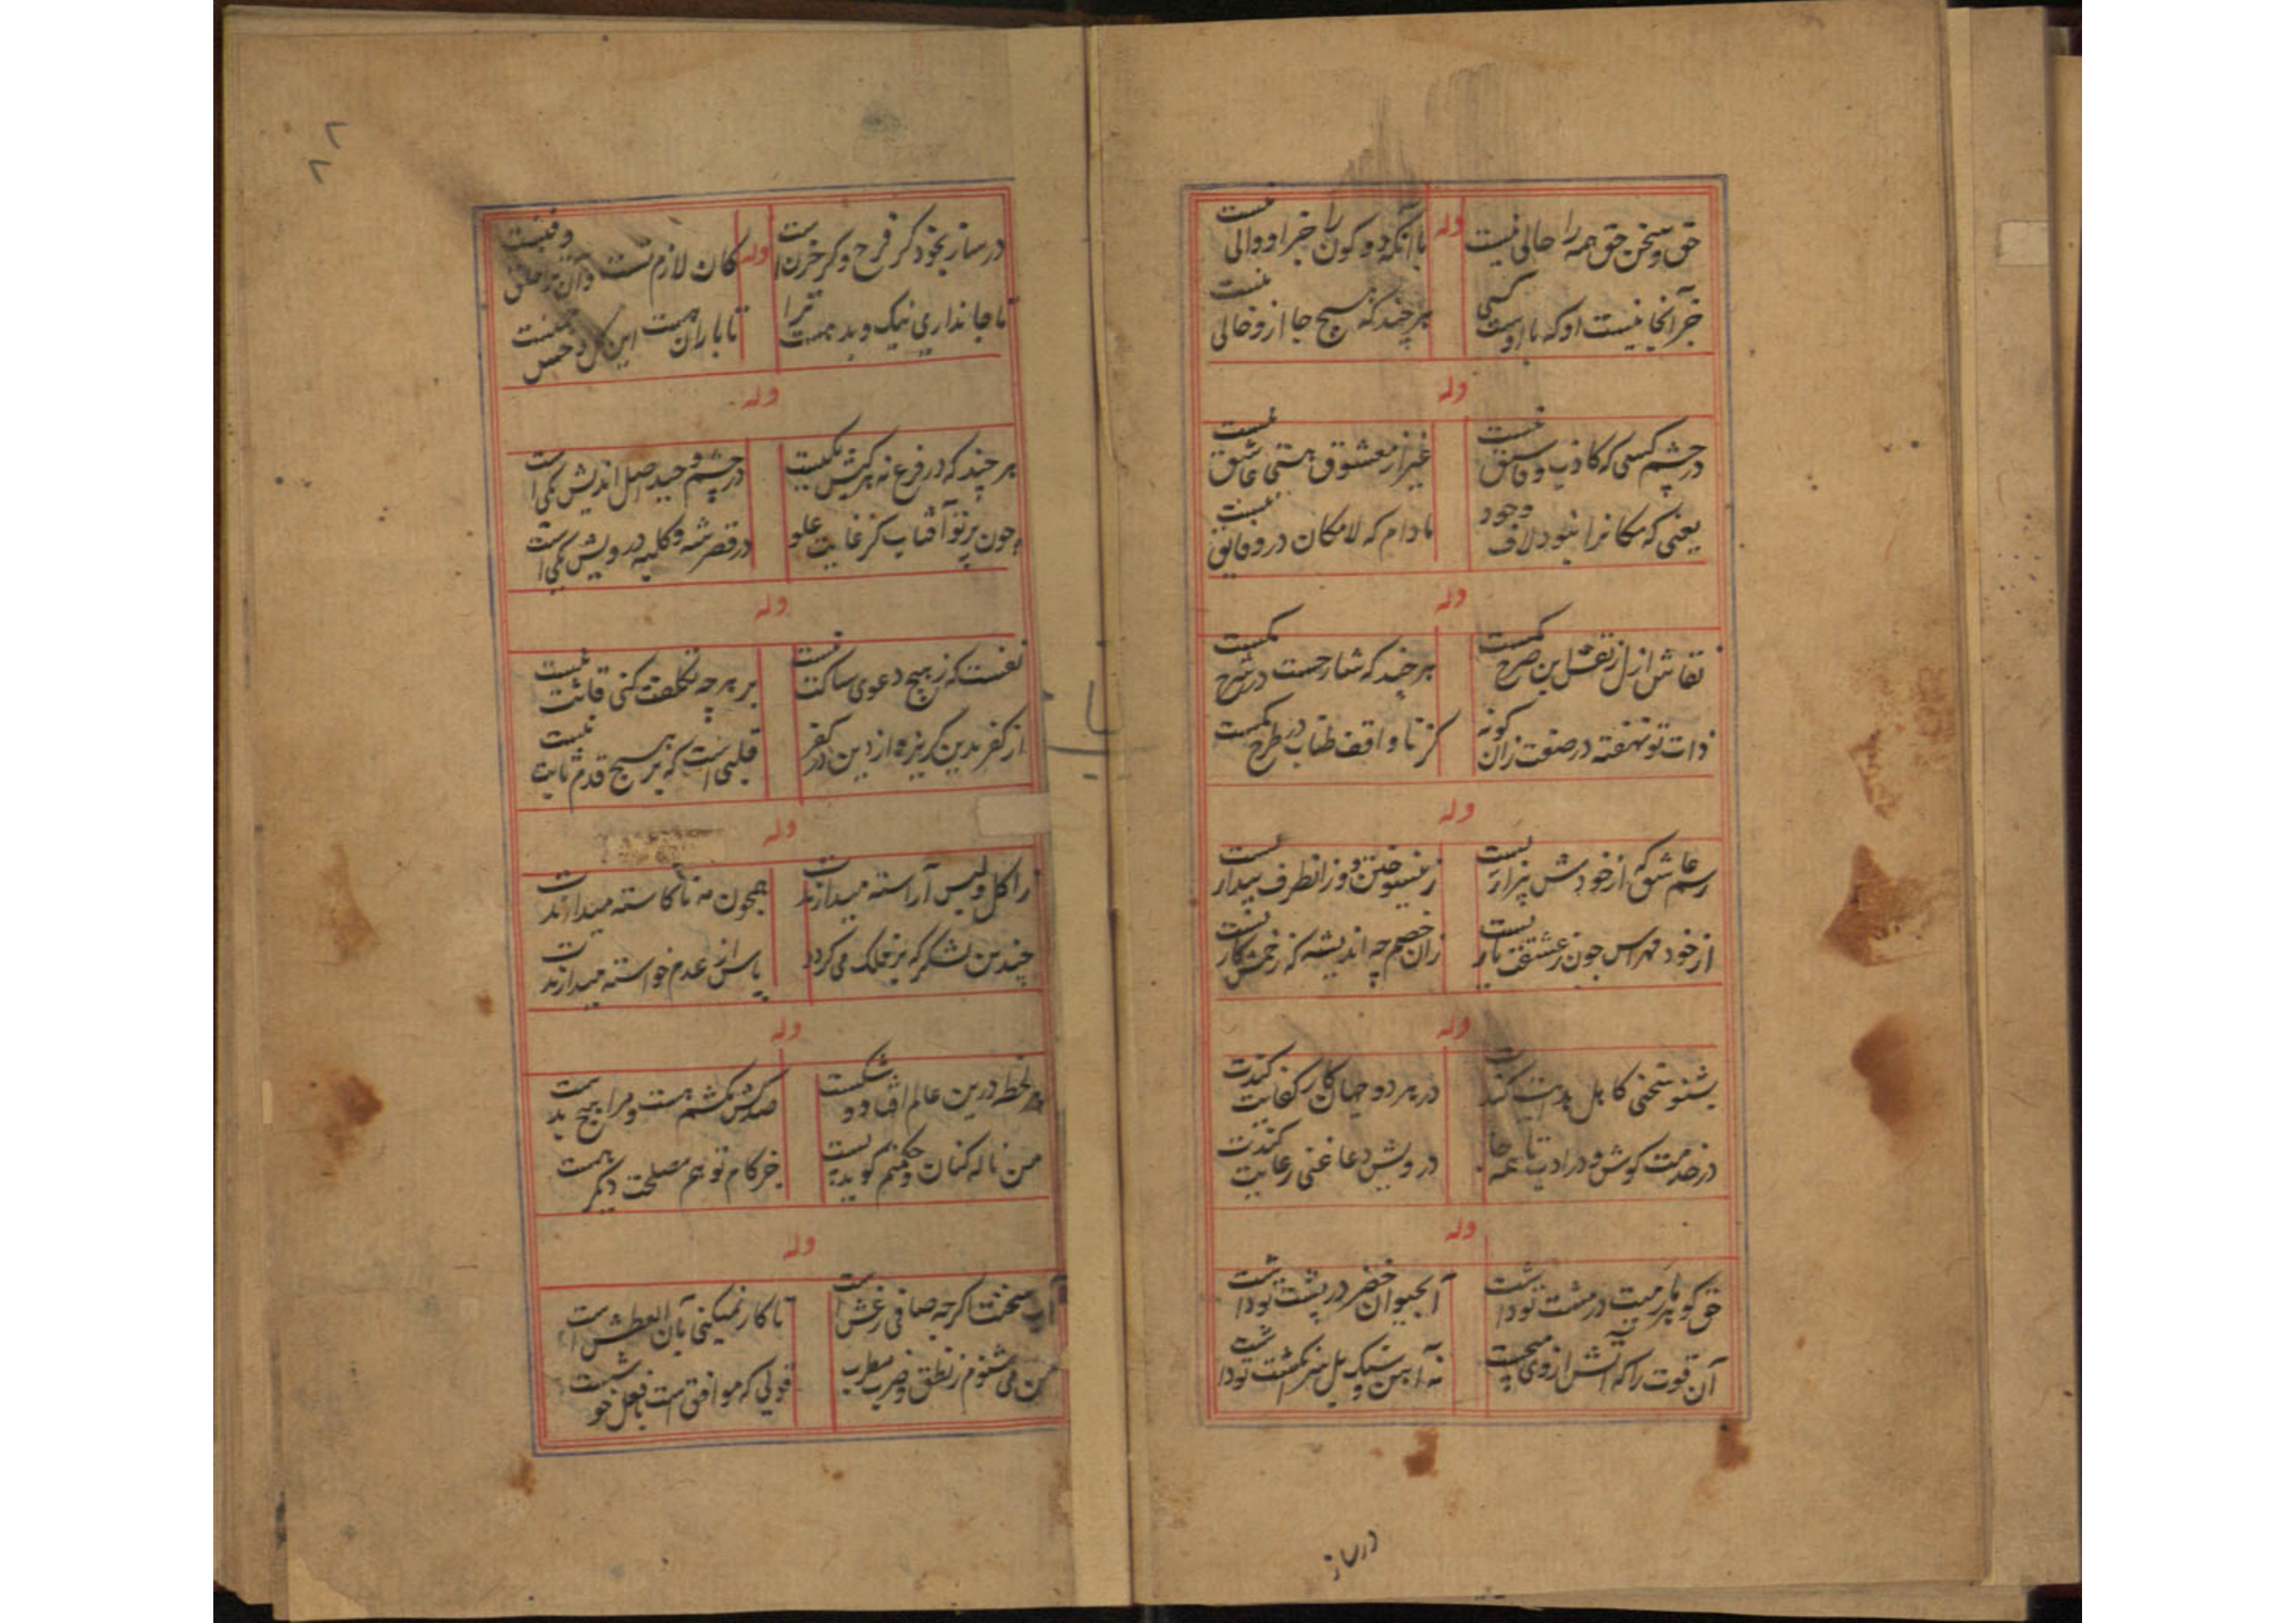 حق و سخن حق همه را حالی نیست
وله
با آنکه دو کون را خبر او والی نیست
جز آنجا نیست او که با اوست کسی
هر چند که هیچ جا ازو خالی نیست
وله
در چشم کسی که کاذب و فاسق نیست
غیر از معشوق هستی عاشق نیست
یعنی که مکانرا نبود لاف وجود
مادام که لامکان درو فایق نیست
وله
نقاش ازل ز نقش این صرح یکیست
هر چند که شارحست در شرح یکیست
ذات تو نهفته در صفت زان کونه
کز تا واقف طناب در طرح یکیست
وله
رسم عاشق که از خودش بیزاریست
زینسو خفتن و زانطرف بیداریست
از خود مهراس چون ز عشقت یاریست
زان خصم چه اندیشه که زخمش کاریست
وله
بشنو سخنی کاهل هدایت کندت
در هر دو جهان کار کفایت کندت
در خدمت کوش و در ادب تا همه جا
درویش دعا غنی رعایت کندت
وله
حق کوهر مارمیت در مشت تو داشت
آبحیوان خضر در پشت تو داشت
آن قوت را که آتش از وی میجست
نه آهن و سنک بل سر انکشت تو داشت
درساز
۸۸
در ساز بخود کر فرح و کر خزن است
وله
کان لازم تست وآن
تا جا نداری نیک و بد هست ترا
تا باران هست این کل و خس
وله
هر چند که در فرع نه هر کیش یکیست
در چشم وحید اصل اندیش یکی است
چون پرتو آفتاب کز غایت علو
در قصر شه و کلبه درویش یکی است
وله
نفست که ز هیچ دعوی ساکت نیست
بر هر چه تکلفت کنی قانت نیست
از کفر بدین کریزد و از دین در کفر
قلبی است که بر هیچ قدم ثابت نیست
وله
را کل و لبس آراسته میدارندت
همچون مه نا کاسته میدارندت
چندین لشکر که بر فلک می کردد
پاس از عدم خواسته میدارندت
وله
هر لحظه درین عالم افتاد و شکست
صد کش مکشم هست و مرا هیچ بدست
من ناله کنان و حکمتم کوید بست
جز کام تو هم مصلحت دیکر هست
وله
آب سخنت اکرچه صافی ز غش است
تا کار نمیکنی بآن العطش است
من می شنوم ز نطق و ضرب مطرب
قولی که موافق است با فعل خوشست